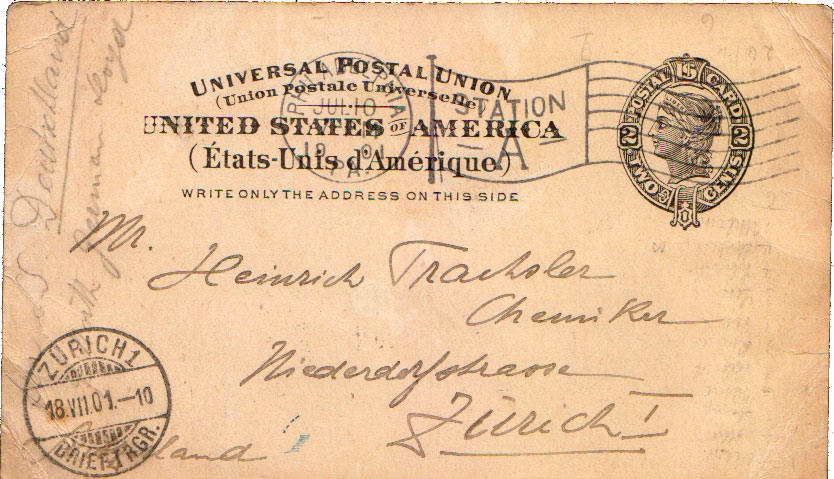 UNIVERSAL POSTAL UNION
(Union Postale Universelle)
UNITED STATES OF AMERICA
(États-Unis d'Amérique)
WRITE ONLY THE ADDRESS ON THIS SIDE
PHILADELPHIA
JUL 10
1901
PA.
STATION
A
POSTAL CARD
2 TWO CENTS 2
Deutschland
North German Lloyd
Mr.
Heinrich Trachsler
Chemiker
Niederdorfstrasse
Zürich I
ZÜRICH 1
18.VII.01.-10
BRIEFTRGR.